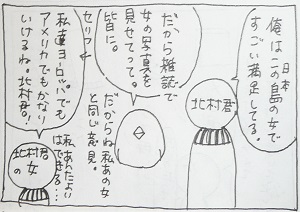 日本
俺はこの島の女で
すごい満足してる。
北村君
だから雑誌で
女の写真を
見せてって。
皆に。
セリフ←
だからね私あの女
と同じ意見。
私達ヨーロッパでも
アメリカでもかなり
いけるね北村君。
私あんたより
はできる…
北村君
の女